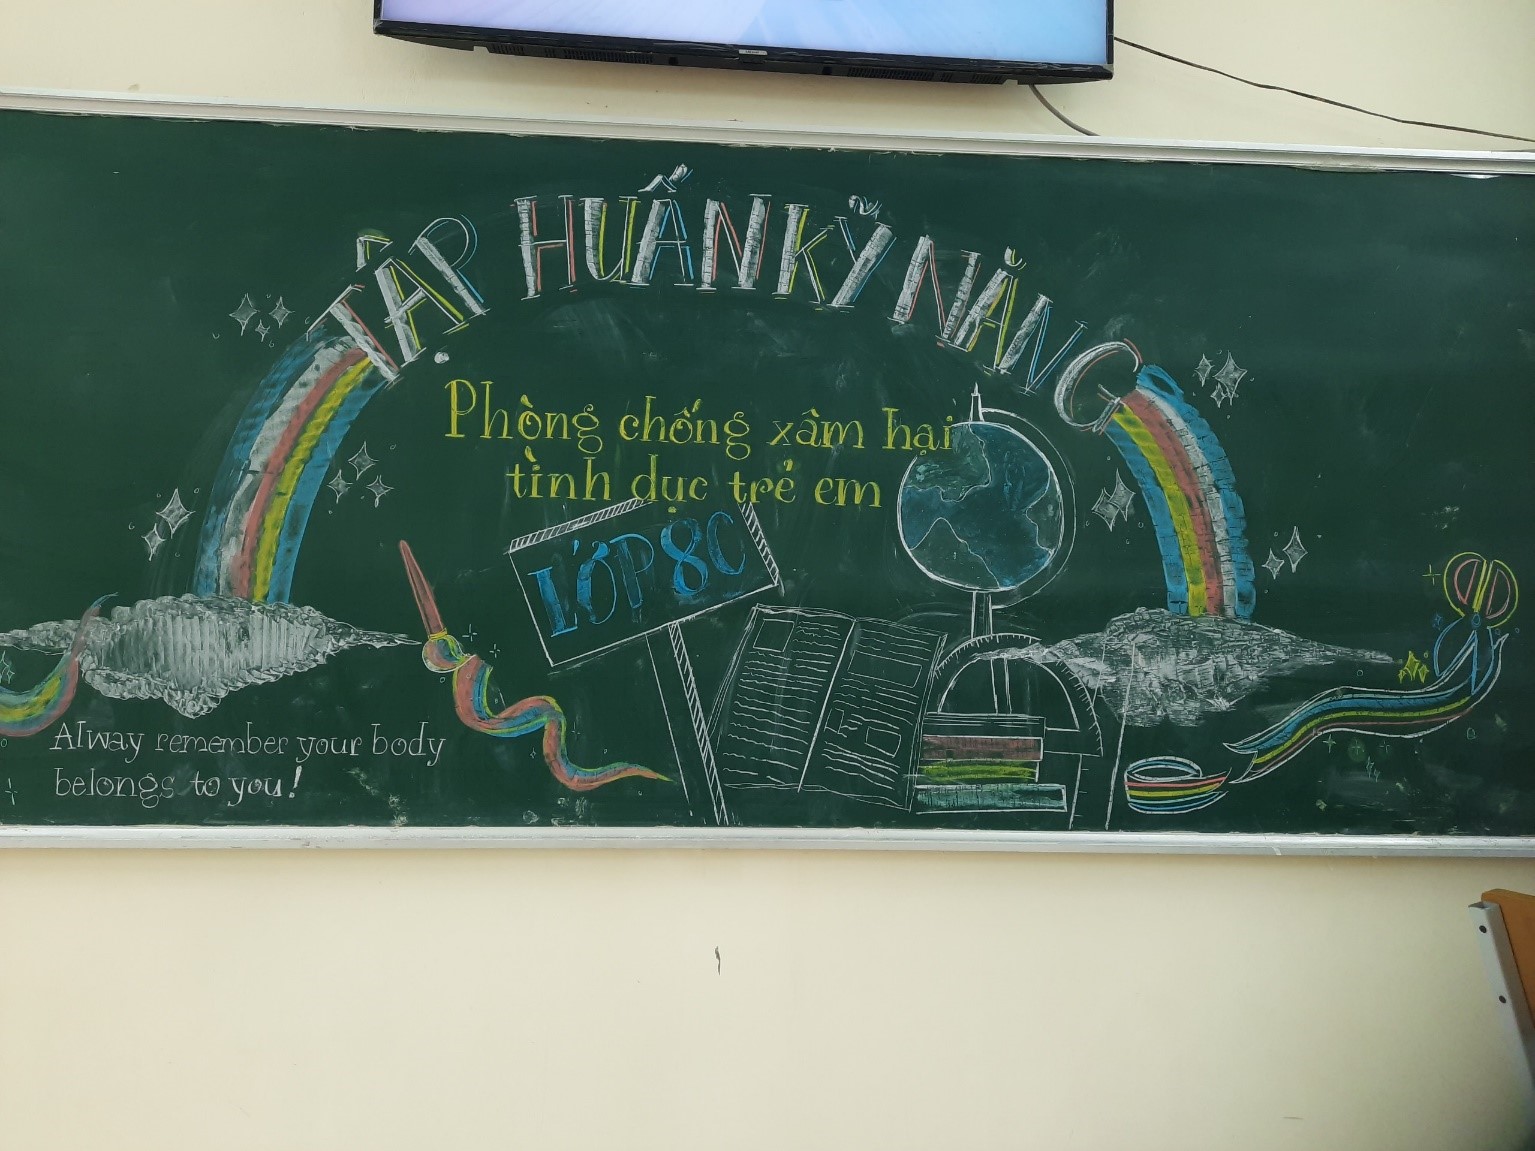 TẬP HUẤN KỸ NĂNG
Phòng chống xâm hại
tình dục trẻ em
LỚP 8C
Alway remember your body
belongs to you!